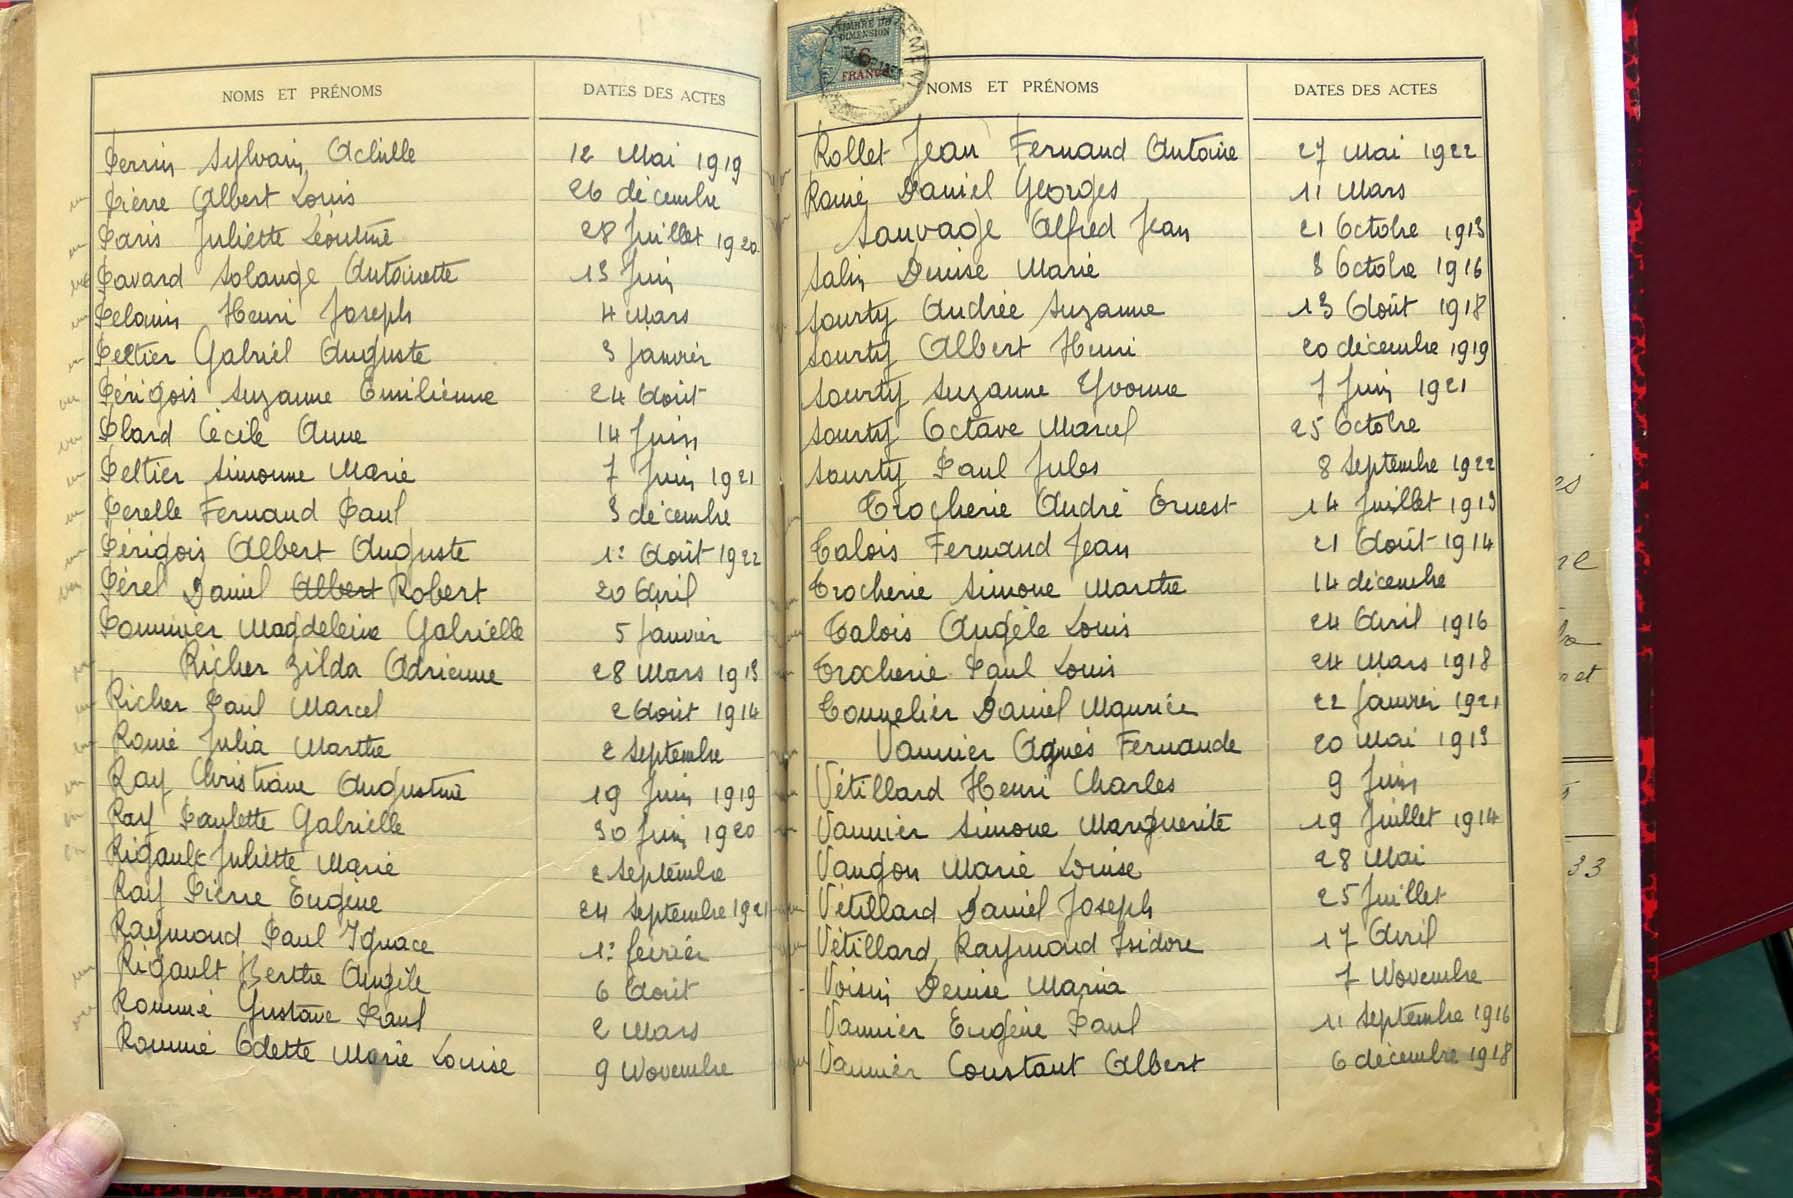 NOMS ET PRÉNOMS DATES DES ACTES
Perrin Sylvain Achille 12 Mai 1919
Pierre Albert Louis 26 décembre
Paris Juliette Léontine 28 Juillet 1920
Pavard Solange Antoinette 13 Juin
Pelouin Henri Joseph 4 Mars
Peltier Gabriel Auguste 3 Janvier
Périgois Suzanne Emilienne 24 Août
Plard Cécile Anne 14 Juin
Peltier Simonne Marie 7 Juin 1921
Perelle Fernand Paul 3 décembre
Périgois Albert Auguste 1er Août 1922
Pérel Daniel Albert Robert 20 Avril
Pommier Magdeleine Gabrielle 5 Janvier
Richer Zilda Adrienne 28 Mars 1913
Richer Paul Marcel 2 Août 1914
Romé Julia Marthe 2 Septembre
Ray Christiane Augustine 19 Juin 1919
Ray Paulette Gabrielle 30 Juin 1920
Rigault Juliette Marie 2 Septembre
Ray Pierre Eugène 24 Septembre 1921
Raymond Paul Ignace 1er février
Rigault Berthe Angèle 6 Août
Rommé Gustave Paul 2 Mars
Rommé Odette Marie Louise 9 Novembre
TIMBRE DE DIMENSION
6 FRANCS
NOMS ET PRÉNOMS DATES DES ACTES
Rollet Jean Fernand Antoine 27 Mai 1922
Romé Daniel Georges 11 Mars
Sauvage Alfred Jean 21 Octobre 1913
Salin Denise Marie 8 Octobre 1916
Sourty Andrée Suzanne 13 Août 1918
Sourty Albert Henri 20 décembre 1919
Sourty Suzanne Yvonne 7 Juin 1921
Sourty Octave Marcel 25 Octobre
Sourty Paul Jules 8 Septembre 1922
Trocherie André Ernest 14 Juillet 1913
Talois Fernand Jean 21 Août 1914
Trocherie Simone Marthe 14 décembre
Talois Angèle Louis 24 Avril 1916
Trocherie Paul Louis 24 Mars 1918
Tonnelier Daniel Maurice 22 Janvier 1921
Vannier Agnès Fernande 20 Mai 1913
Vétillard Henri Charles 9 Juin
Vannier Simone Marguerite 19 Juillet 1914
Vaugon Marie Louise 28 Mai
Vétillard Daniel Joseph 25 Juillet
Vétillard, Raymond Isidore 17 Avril
Voisin Denise Maria 7 Novembre
Vannier Eugène Paul 11 Septembre 1916
Vannier Constant Albert 6 décembre 1918
33